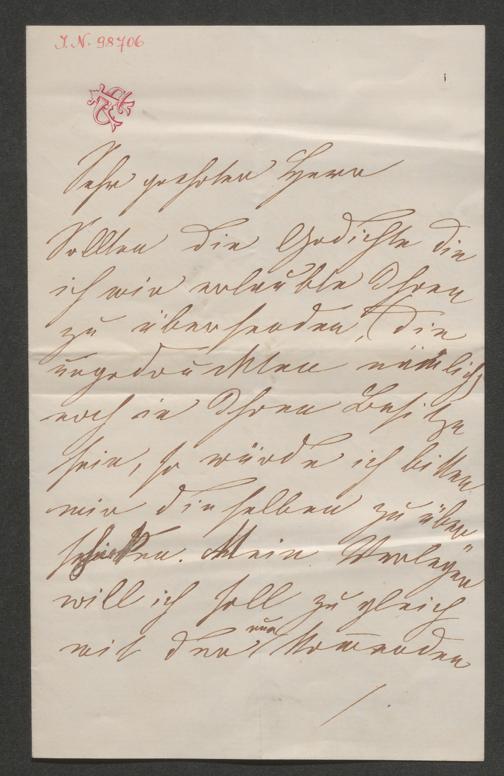 J. N. 98706
Sehr geehrter Herr
Sollten die Gedichte die
ich mir erlaubte Ihnen
zu übersenden, die
ungedruckten nämlich
noch in Ihrem Besitze
sein, so würde ich bitten
mir dieselben zu über
schicken. Mein Verleger
will ich soll zugleich
mit der nun kommenden